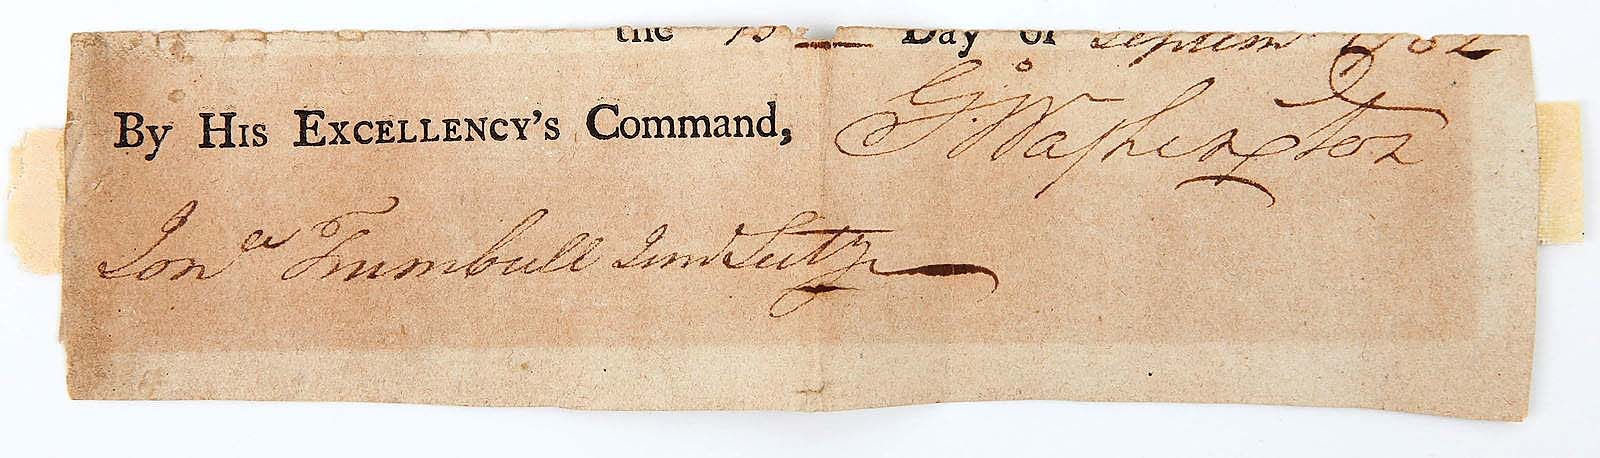 the 13 Day of Septemr 1782
By His Excellency's Command, Go: Washington
Jona Trumbull Junr Secty